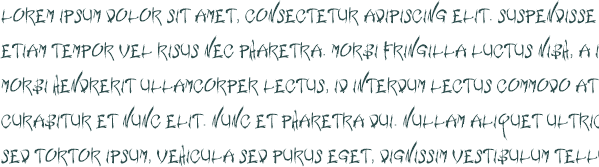 LOREM IPSUM DOLOR SIT AMET, CONSECTETUR ADIPISCING ELIT. SUSPENDISSE
ETIAM TEMPOR VEL RISUS NEC PHARETRA. MORBI FRINGILLA LUCTUS NIBH, A I
MORBI HENDRERIT ULLAMCORPER LECTUS, ID INTERDUM LECTUS COMMODO AT
CURABITUR ET NUNC ELIT. NUNC ET PHARETRA DUI. NULLAM ALIQUET ULTRIC
SED TORTOR IPSUM, VEHICULA SED PURUS EGET, DIGNISSIM VESTIBULUM TELL